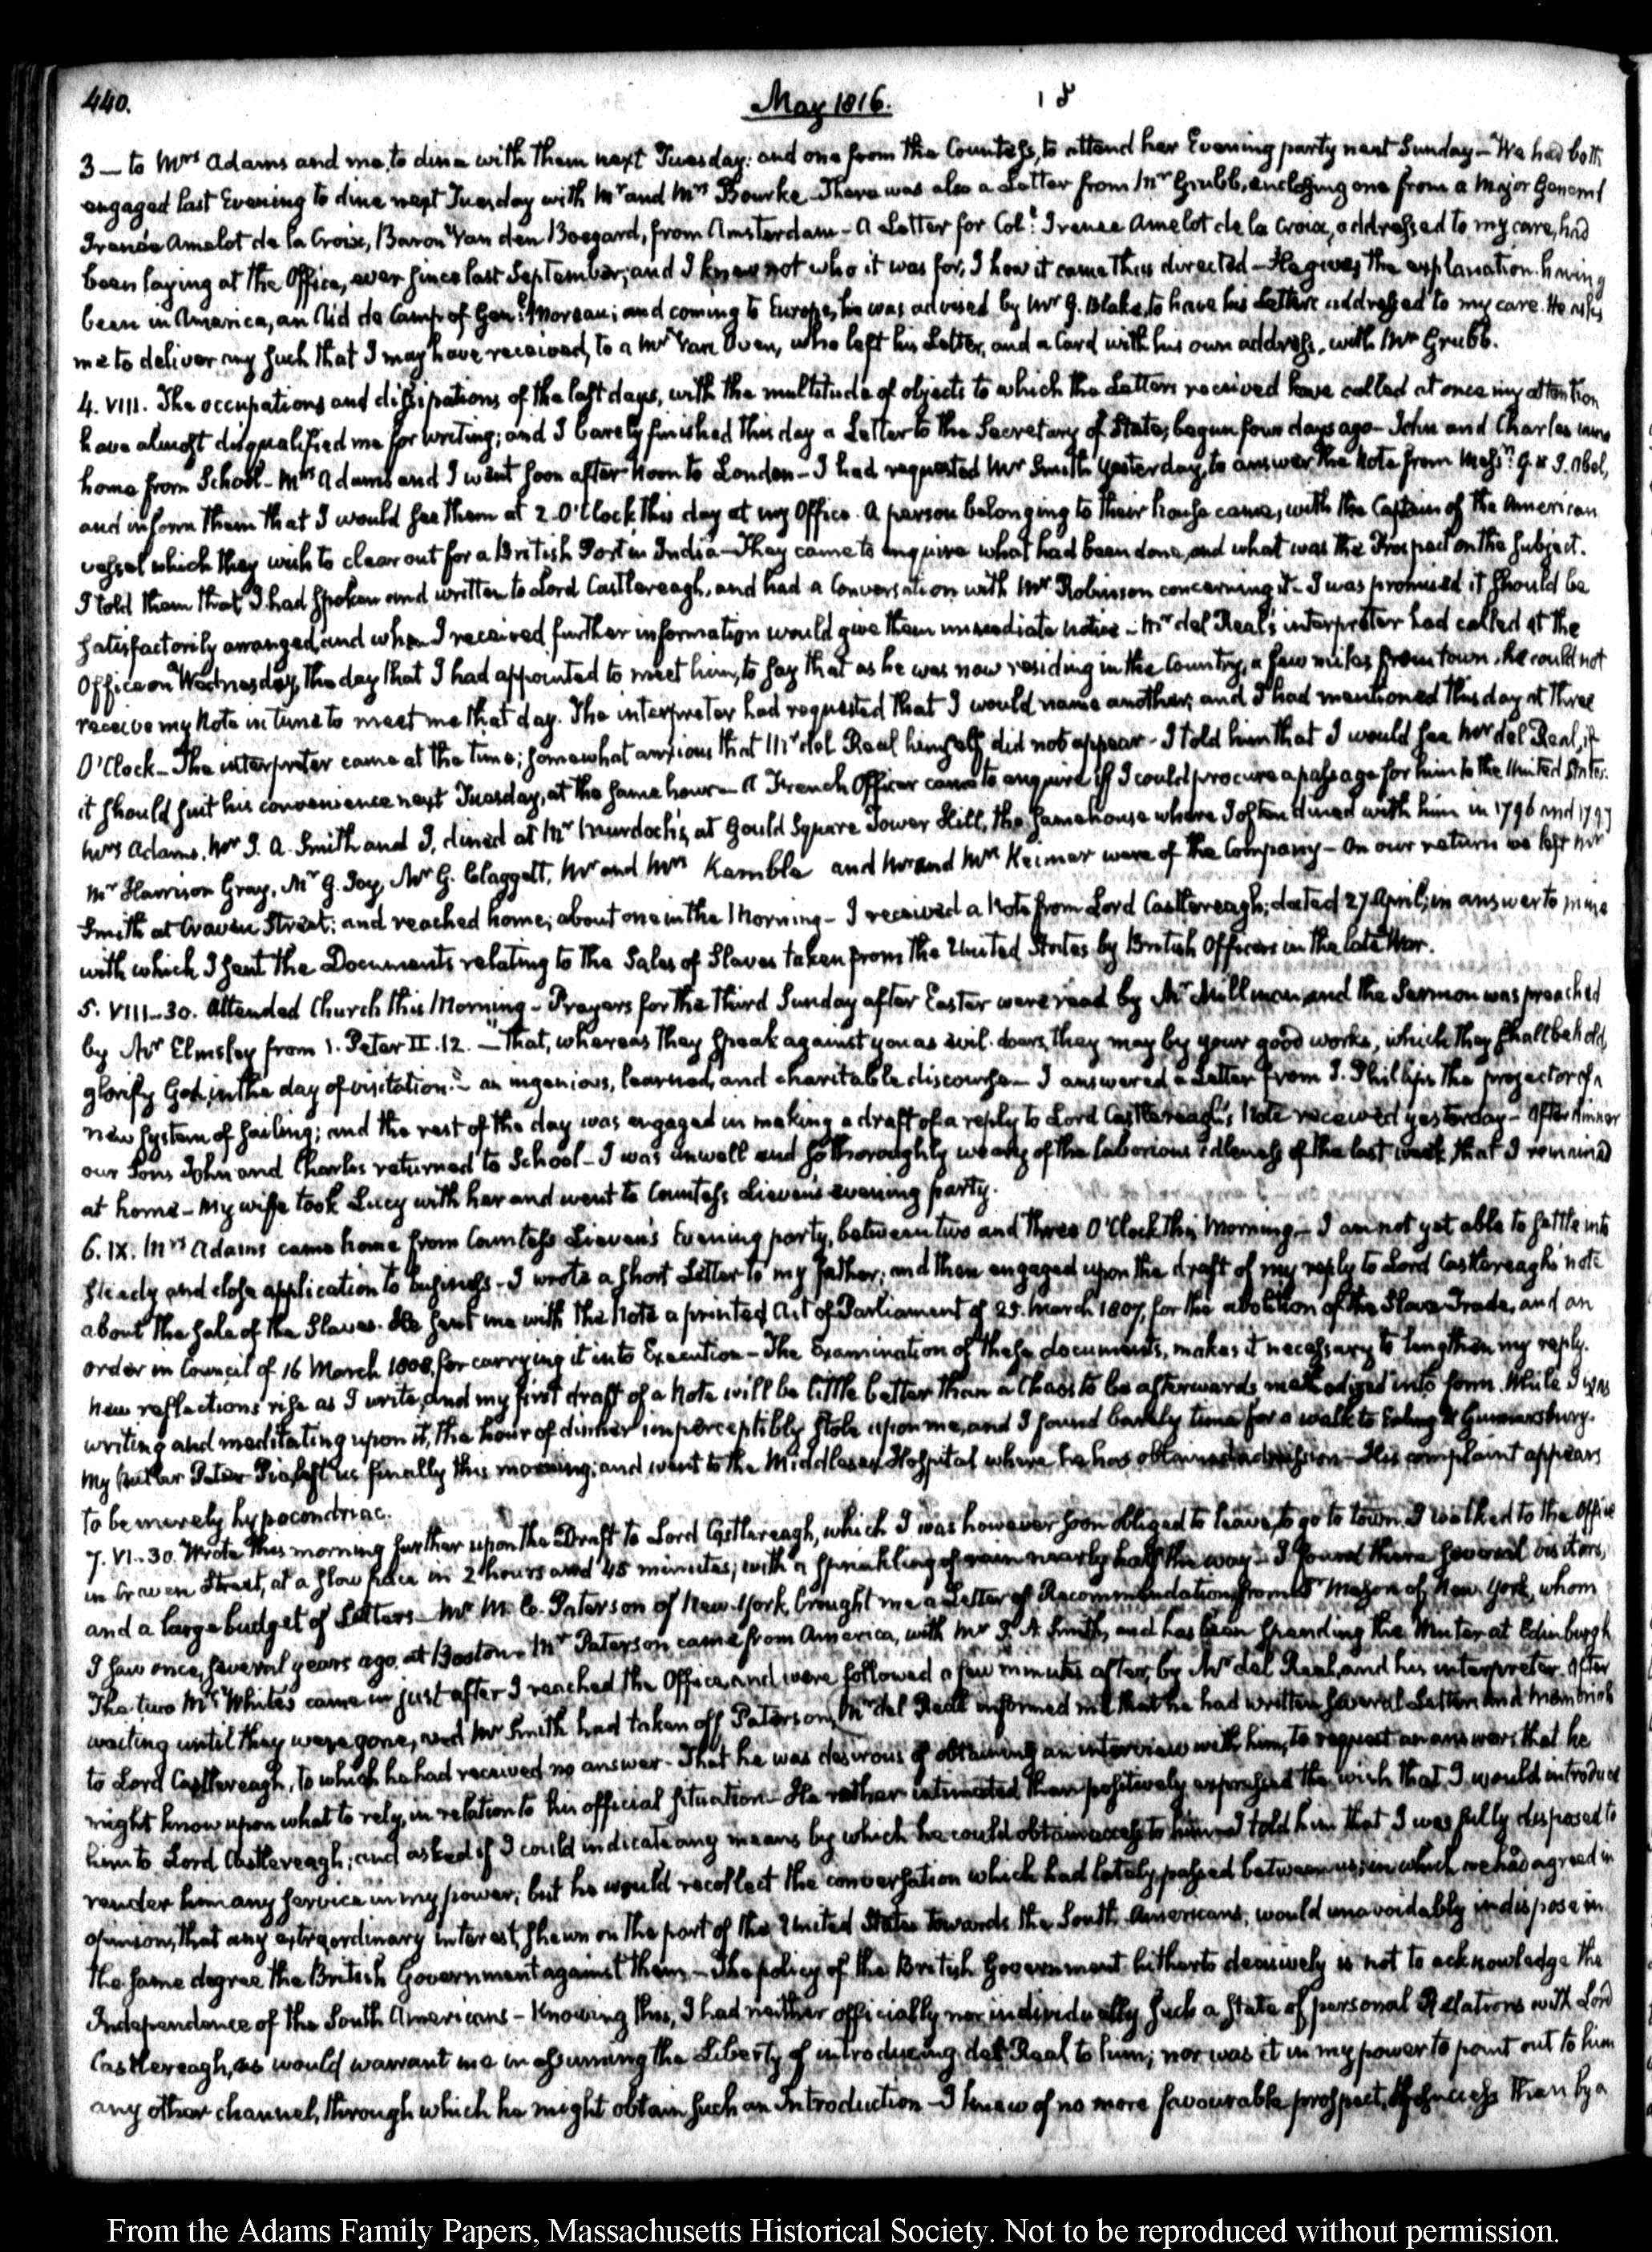 440.
May 1816.
18
3 — to Mrs Adams and me, to dine with them next Tuesday: and one from the Countess, to attend her Evening party next Sunday — We had both
engaged last Evening to dine next Tuesday with Mr and Mrs Bourke. There was also a Letter from Mr Grubb, enclosing one from a Major General
Irenée Amelot de la Croix, Baron Van den Boegard, from Amsterdam — A Letter for Coll: Irenee Amelot de la Croix, addressed to my care, had
been laying at the Office, ever since last September; and I knew not who it was for, how it came thus directed — He gives the explanation. having
been in America, an Aid de Camp of Genl: Moreau; and coming to Europe, he was advised by Mr G. Blake, to have his Letters addressed to my care. He asks
me to deliver any such that I may have received, to a Mr Van Oven, who left his Letter, and a Card with his own address, with Mr Grubb.
4. VIII. The occupations and dissipations of the last days, with the multitude of objects to which the Letters received have called at once my attention
have almost disqualified me for writing; and I barely finished this day a Letter to the Secretary of State, begun four days ago — John and Charles came
home from School — Mrs Adams and I went soon after Noon to London — I had requested Mr Smith yesterday, to answer the Note from Messrs: G. & I. Abel,
and inform them that I would see them at 2 O'Clock this day at my Office. A person belonging to their house came, with the Captain of the American
vessel which they wish to clear out for a British Port in India — They came to enquire what had been done, and what was the Prospect on the subject.
I told them that I had spoken and written to Lord Castlereagh, and had a Conversation with Mr Robinson concerning it — I was promised it should be
satisfactorily arranged, and when I received further information would give them immediate notice — Mr del Real's interpreter had called at the
Office on Wednesday, the day that I had appointed to meet him, to say that as he was now residing in the Country, a few miles from town, he could not
receive my Note in time to meet me that day. The interpreter had requested that I would name another; and I had mentioned this day at three
O'Clock — The interpreter came at the time; somewhat anxious that Mr del Real himself did not appear — I told him that I would see Mr del Real, if
it should suit his convenience next Tuesday, at the same hour — A French Officer came to enquire if I could procure a passage for him to the United States.
Mrs Adams, Mr J. A. Smith and I, dined at Mr Murdoch's, at Gould Square Tower Hill, the same house where I often dined with him in 1796 and 1797
Mr Harrison Gray, Mr G. Joy, Mr G. Claggett, Mr and Mrs Kemble and Mr and Mrs Keimer were of the Company — On our return we left Mr
Smith at Craven Street; and reached home, about one in the Morning — I received a Note from Lord Castlereagh; dated 27 April; in answer to mine
with which I sent the Documents relating to the Sales of Slaves taken from the United States by British Officers in the late War.
5. VIII–30. Attended Church this Morning — Prayers for the third Sunday after Easter were read by Mr Millman and the Sermon was preached
by Mr Elmsley from 1. Peter II. 12. — "That, whereas they speak against you as evil-doers, they may by your good works, which they shall behold,
glorify God, in the day of visitation." — an ingenious, learned, and charitable discourse — I answered a Letter from I. Phillips the projector of a
new System of sailing; and the rest of the day was engaged in making a draft of a reply to Lord Castlereagh's Note received yesterday — After dinner
our Sons John and Charles returned to School — I was unwell and so thoroughly weary of the laborious idleness of the last week, that I remained
at home — My wife took Lucy with her and went to Countess Lieven's evening party.
6. IX. Mrs Adams came home from Countess Lieven's Evening party, between two and three O'Clock this Morning — I am not yet able to settle into
steady and close application to business — I wrote a short Letter to my father; and then engaged upon the draft of my reply to Lord Castlereagh's note
about the sale of the Slaves. He sent me with the Note a printed Act of Parliament of 25. March 1807, for the abolition of the Slave Trade, and an
order in Council of 16 March 1808, for carrying it into Execution — The Examination of these documents, makes it necessary to lengthen my reply.
New reflections rise as I write, and my first draft of a Note will be little better than a Chaos to be afterwards methodized into form. While I was
writing and meditating upon it, the hour of dinner imperceptibly stole upon me, and I found barely time for a walk to Ealing & Gunnersbury.
My butler Peter Pio left us finally this morning; and went to the Middlesex Hospital where he has obtained admission — His complaint appears
to be merely hypocondriac.
7. VI–30. Wrote this morning further upon the Draft to Lord Castlereagh, which I was however soon obliged to leave, to go to town. I walked to the Office
in Craven Street, at a slow pace in 2 hours and 45 minutes; with a sprinkling of rain nearly half the way — I found there several visitors,
and a large budget of Letters — Mr M. C. Paterson of New-York, brought me a Letter of Recommendation from Mason of New York, whom
I saw once, several years ago, at Boston. Mr Paterson came from America, with Mr J. A. Smith, and has been spending the Winter at Edinburgh
The two Mr Whites came in just after I reached the Office, and were followed a few minutes after, by Mr del Real, and his interpreter. After
waiting until they were gone, and Mr Smith had taken off Paterson, Mr del Real informed me that he had written several Letters and Memorials
to Lord Castlereagh, to which he had received no answer — That he was desirous of obtaining an interview with him, to request an answer; that he
might know upon what to rely, in relation to his official situation — He rather intimated than positively expressed the wish that I would introduce
him to Lord Castlereagh; and asked if I could indicate any means by which he could obtain access to him — I told him that I was fully disposed to
render him any service in my power; but he would recollect the conversation which had lately passed between us; in which we had agreed in
opinion, that any extraordinary interest, shewn on the part of the United States towards the South Americans, would unavoidably indispose in
the same degree the British Government against them — The policy of the British Government hitherto decisively is not to acknowledge the
Independence of the South Americans — Knowing this, I had neither officially nor individually such a State of personal Relations with Lord
Castlereagh, as would warrant me in assuming the Liberty of introducing del Real to him; nor was it in my power to point out to him
any other channel, through which he might obtain such an Introduction — I knew of no more favourable prospect, of success than by a
From the Adams Family Papers, Massachusetts Historical Society. Not to be reproduced without permission.